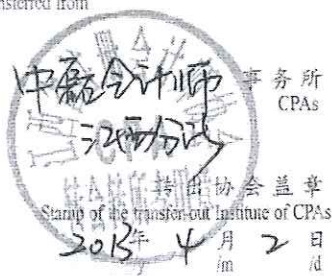 nsferred from
中磊会计师 事务所
CPAs
江西分所
转出协会盖章
Stamp of the transfer-out Institute of CPAs
2013年 4月 2日
/m /d